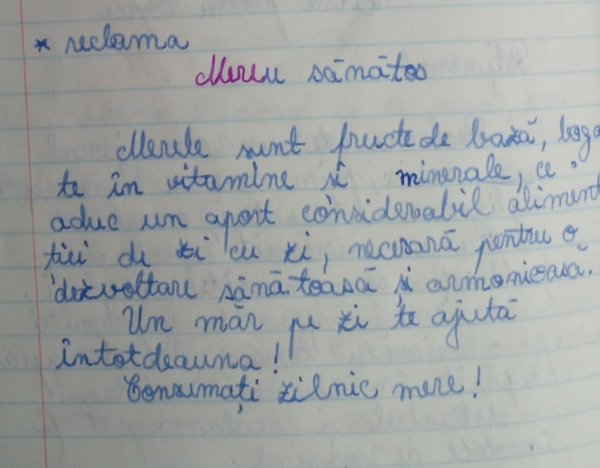 * reclama
Mereu sănătos
Merele sunt fructe de bază, boga
te în vitamine și minerale, ce
aduc un aport considerabil aliment
ției de zi cu zi, necesară pentru o
dezvoltare sănătoasă și armonioasă.
Un măr pe zi te ajută
întotdeauna!
Consumați zilnic mere!